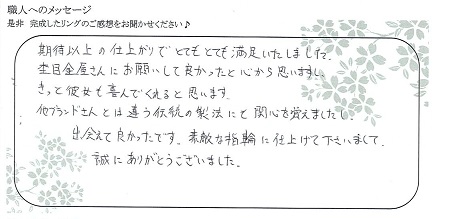 職人へのメッセージ
是非 完成したリングのご感想をお聞かせください♪
期待以上の仕上がりでとてもとても満足いたしました。
杢目金屋さんにお願いして良かったと心から思いますし、
きっと彼女も喜んでくれると思います。
他ブランドさんとは違う伝統の製法にと関心を覚えましたし、
出会えて良かったです。素敵な指輪に仕上げて下さいまして、
誠にありがとうございました。